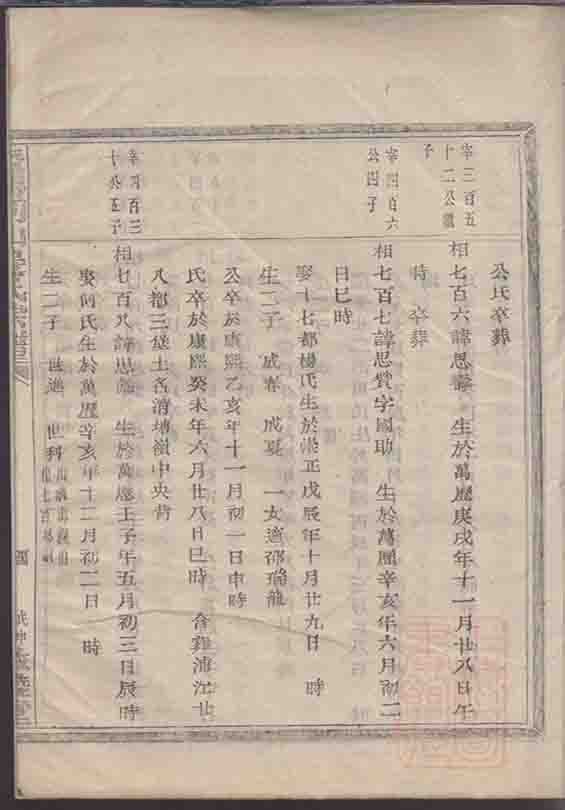 公氏卒葬
宰三百五
十二公繼
子
相七百六諱思 生於萬曆庚戌年十一月廿八日午
時 卒葬
宰四百六
公四子
相七百七諱思贊字國助 生於萬曆辛亥年六月初二
日巳時
娶十七都楊氏生於崇正戊辰年十月廿九日 時
生二子 成春 成夏 一女適邵瑞龍
公卒於康熙乙亥年十一月初一日申時
氏卒於康熙癸未年六月廿八日巳時 合葬浦江廿
八都三堡土名清塘嶺中央背
宰四百三
十公五子
相七百八諱思 生於萬曆壬子年五月初三日辰時
娶何氏生於萬曆辛亥年十二月初二日 時
生二子 世進 世科